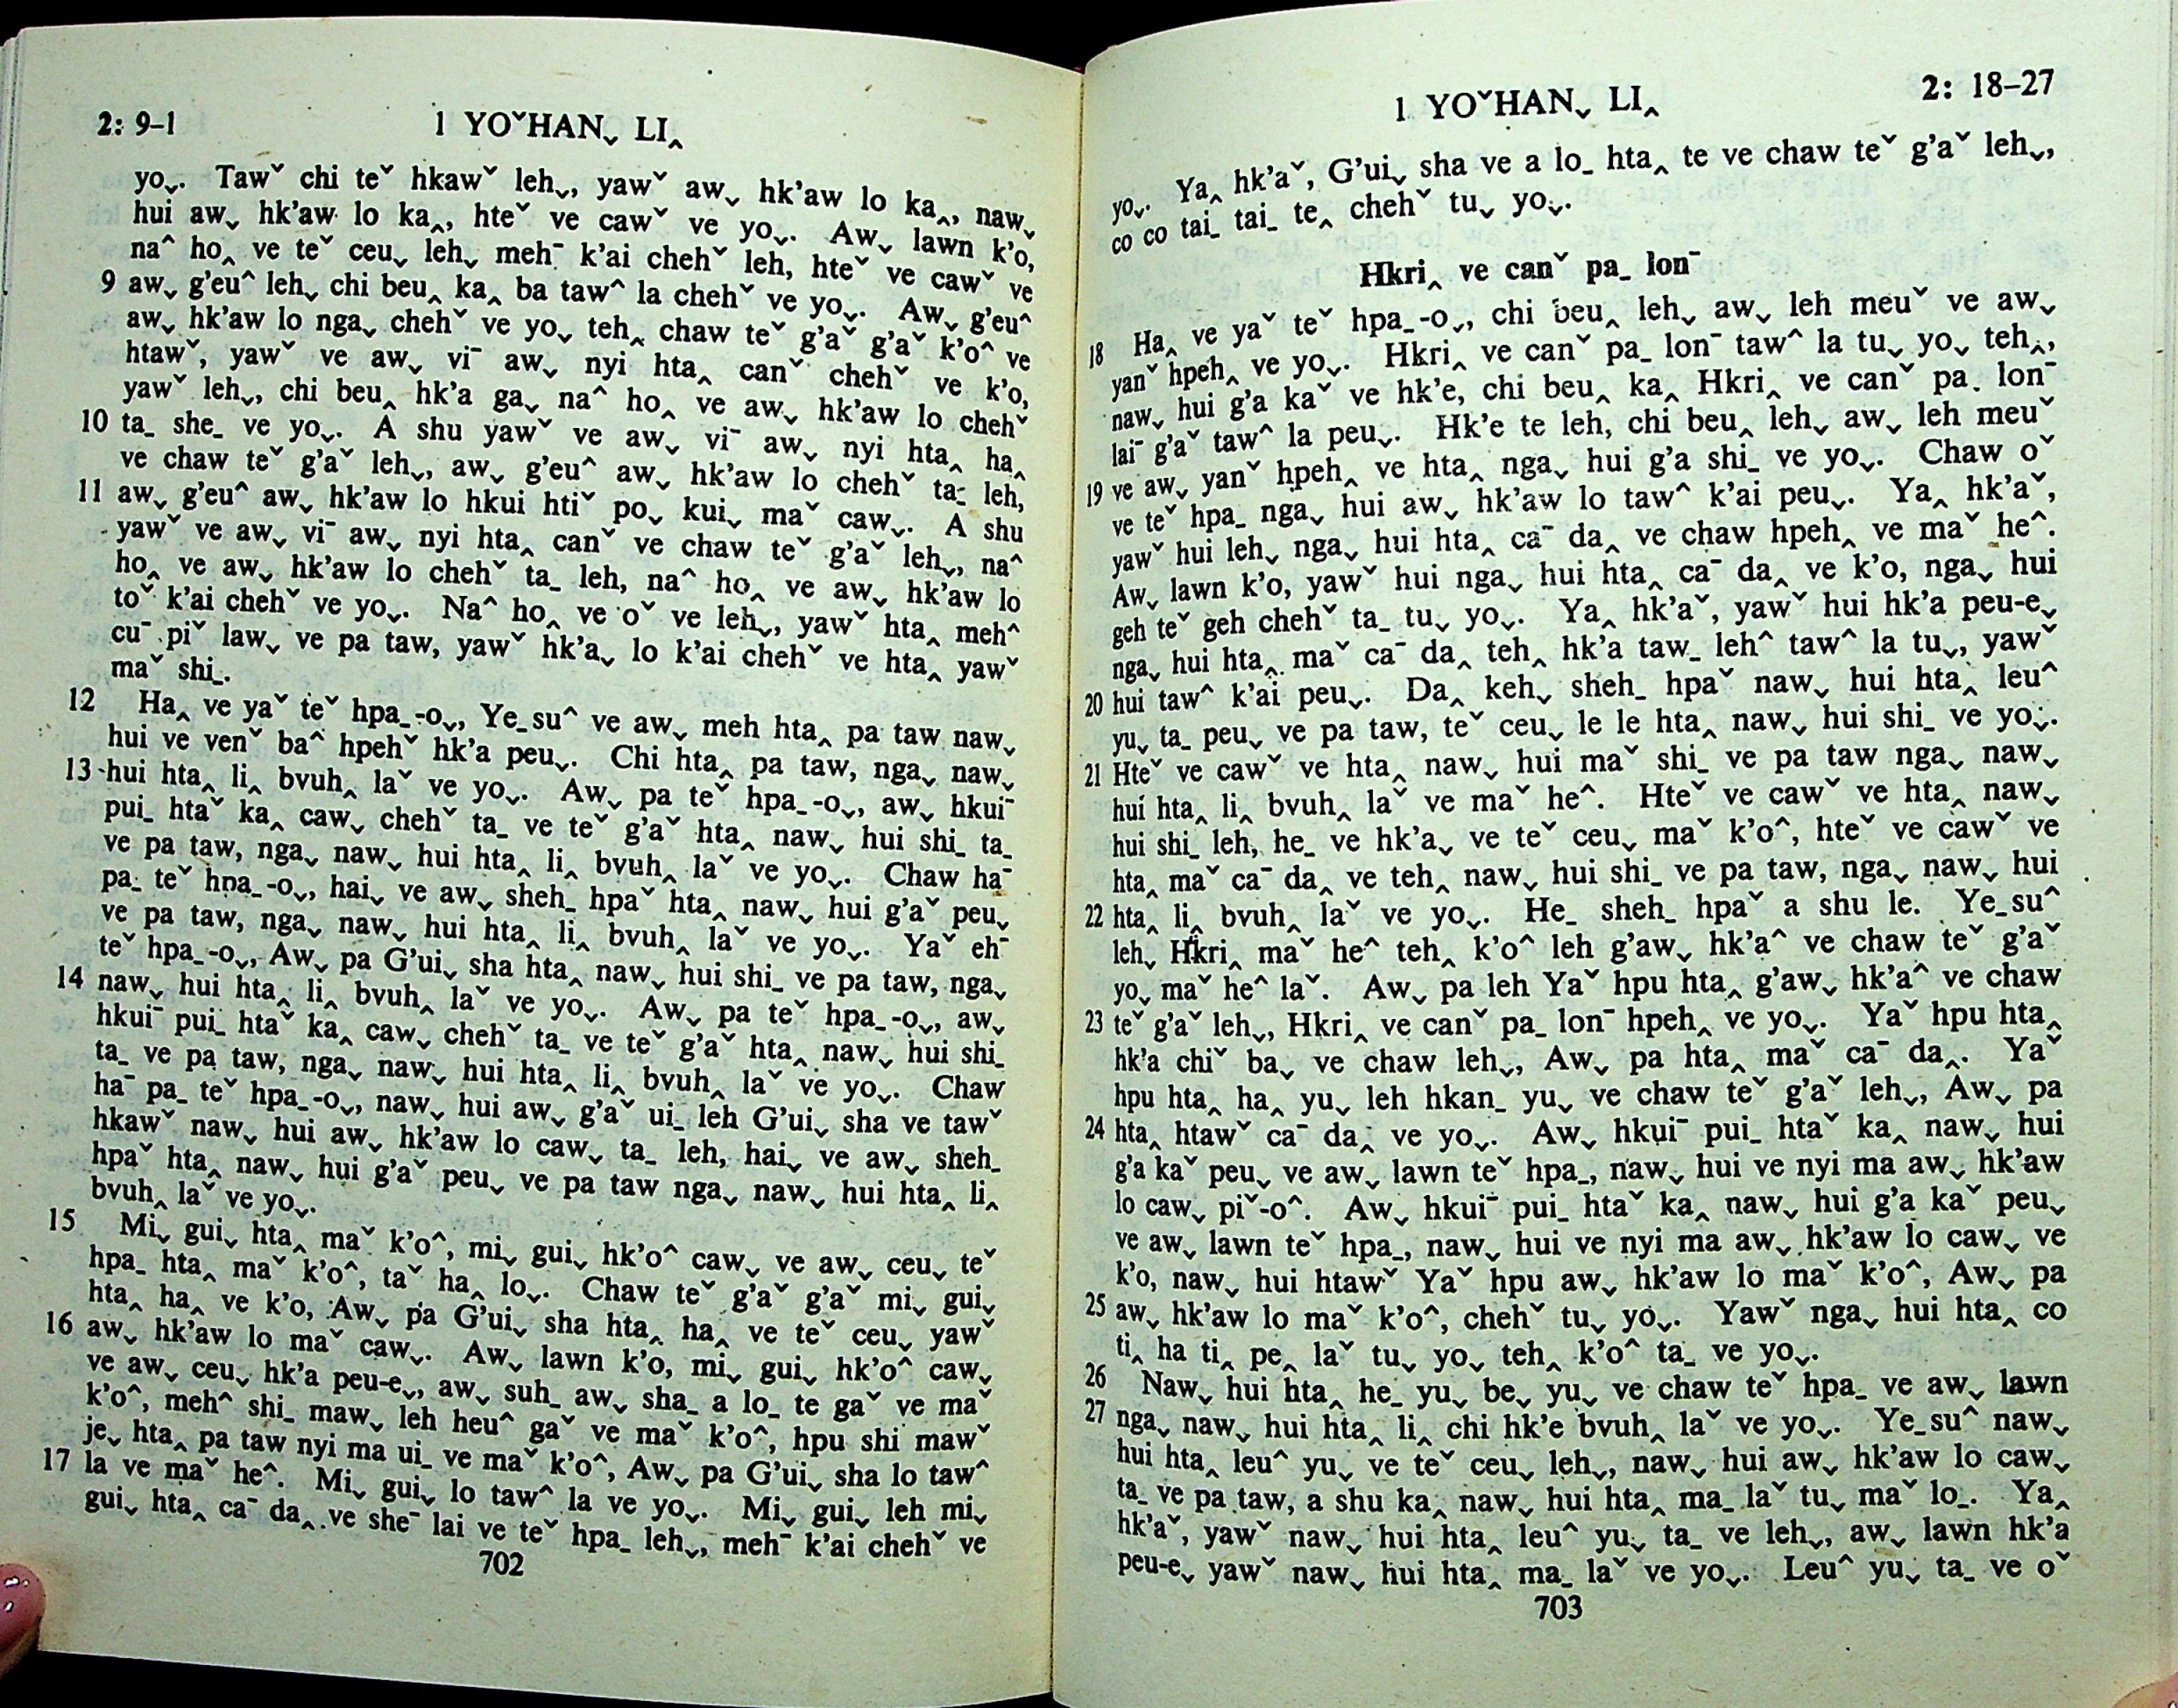 2: 9-1
1 YOˇHANˬ LI‸
yoˬ. Tawˇ chi teˇ hkawˇ lehˬ, yawˇ awˬ hk’aw lo ka‸, nawˬ
hui awˬ hk’aw lo ka‸, hteˇ ve cawˇ ve yoˬ. Awˬ lawn k’o,
na^ ho‸ ve teˇ ceuˬ lehˬ mehˉ k’ai chehˇ leh, hteˇ ve cawˇ ve
9 awˬ g’eu^ lehˬ chi beu‸ ka‸ ba taw^ la chehˇ ve yoˬ. Awˬ g’eu^
awˬ hk’aw lo ngaˬ chehˇ ve yoˬ teh‸ chaw teˇ g’aˇ g’aˇ k’o^ ve
htawˇ, yawˇ ve awˬ viˉ awˬ nyi hta‸ canˇ chehˇ ve k’o,
yawˇ lehˬ, chi beu‸ hk’a gaˬ na^ ho‸ ve awˬ hk’aw lo chehˇ
10 ta_ she_ ve yoˬ. A shu yawˇ ve awˬ viˉ awˬ nyi hta‸ ha‸
ve chaw teˇ g’aˇ lehˬ, awˬ g’eu^ awˬ hk’aw lo chehˇ ta_ leh,
11 awˬ g’eu^ awˬ hk’aw lo hkui htiˇ poˬ kuiˬ maˇ cawˬ. A shu
yawˇ ve awˬ viˉ awˬ nyi hta‸ canˇ ve chaw teˇ g’aˇ lehˬ, na^
ho‸ ve awˬ hk’aw lo chehˇ ta_ leh, na^ ho‸ ve awˬ hk’aw lo
toˇ k’ai chehˇ ve yoˬ. Na^ ho‸ ve oˇ ve lehˬ, yawˇ hta‸ meh^
cuˉ piˇ lawˬ ve pa taw, yawˇ hk’aˬ lo k’ai chehˇ ve hta‸ yawˇ
maˇ shi_.
12 Ha‸ ve yaˇ teˇ hpa_-oˬ, Ye_su^ ve awˬ meh hta‸ pa taw nawˬ
hui ve venˇ ba^ hpehˇ hk’a peuˬ. Chi hta‸ pa taw, ngaˬ nawˬ
13 hui hta‸ li‸ bvuh‸ laˇ ve yoˬ. Awˬ pa teˇ hpa_-oˬ, awˬ hkuiˉ
pui_ htaˇ ka‸ cawˬ chehˇ ta_ ve teˇ g’aˇ hta‸ nawˬ hui shi_ ta_
ve pa taw, ngaˬ nawˬ hui hta‸ li‸ bvuh‸ laˇ ve yoˬ. Chaw haˉ
pa_ teˇ hpa_-oˬ, haiˬ ve awˬ sheh_ hpaˇ hta‸ nawˬ hui g’aˇ peuˬ
ve pa taw, ngaˬ nawˬ hui hta‸ li‸ bvuh‸ laˇ ve yoˬ. Yaˇ ehˉ
teˇ hpa_-oˬ, Awˬ pa G’uiˬ sha hta‸ nawˬ hui shi_ ve pa taw, ngaˬ
14 nawˬ hui hta‸ li‸ bvuh‸ laˇ ve yoˬ. Awˬ pa teˇ hpa_-oˬ, awˬ
hkuiˉ pui_ htaˇ ka‸ cawˬ chehˇ ta_ ve teˇ g’aˇ hta‸ nawˬ hui shi_
ta_ ve pa taw, ngaˬ nawˬ hui hta‸ li‸ bvuh‸ laˇ ve yoˬ. Chaw
haˉ pa_ teˇ hpa_-oˬ, nawˬ hui awˬ g’aˇ ui_ leh G’uiˬ sha ve tawˇ
hkawˇ nawˬ hui awˬ hk’aw lo cawˬ ta_ leh, haiˬ ve awˬ sheh_
hpaˇ hta‸ nawˬ hui g’aˇ peuˬ ve pa taw ngaˬ nawˬ hui hta‸ li‸
bvuh‸ laˇ ve yoˬ.
15 Miˬ guiˬ hta‸ maˇ k’o^, miˬ guiˬ hk’o^ cawˬ ve awˬ ceuˬ teˇ
hpa_ hta‸ maˇ k’o^, taˇ ha‸ loˬ. Chaw teˇ g’aˇ g’aˇ miˬ guiˬ
hta‸ ha‸ ve k’o, Awˬ pa G’uiˬ sha hta‸ ha‸ ve teˇ ceuˬ yawˇ
16 awˬ hk’aw lo maˇ cawˬ. Awˬ lawn k’o, miˬ guiˬ hk’o^ cawˬ
ve awˬ ceuˬ hk’a peu-eˬ, awˬ suh_ awˬ sha_ a lo_ te gaˇ ve maˇ
k’o^, meh^ shi_ mawˬ leh heu^ gaˇ ve maˇ k’o^, hpu shi mawˇ
jeˬ hta‸ pa taw nyi ma ui_ ve maˇ k’o^, Awˬ pa G’uiˬ sha lo taw^
17 la ve maˇ he^. Miˬ guiˬ lo taw^ la ve yoˬ. Miˬ guiˬ leh miˬ
guiˬ hta‸ caˉ da‸ ve sheˉ lai ve teˇ hpa_ lehˬ, mehˉ k’ai chehˇ ve
702
1 YOˇHANˬ LI‸
2: 18-27
yoˬ. Ya‸ hk’aˇ, G’uiˬ sha ve a lo_ hta‸ te ve chaw teˇ g’aˇ lehˬ,
co co tai_ tai_ te‸ chehˇ tuˬ yoˬ.
Hkri‸ ve canˇ pa_ lonˉ
18 Ha‸ ve yaˇ teˇ hpa_-oˬ, chi beu‸ lehˬ awˬ leh meuˇ ve awˬ
yanˇ hpeh‸ ve yoˬ. Hkri‸ ve canˇ pa_ lonˉ taw^ la tuˬ yoˬ teh‸,
nawˬ hui g’a kaˇ ve hk’e, chi beu‸ ka‸ Hkri‸ ve canˇ pa_ lonˉ
laiˉ g’aˇ taw^ la peuˬ. Hk’e te leh, chi beu‸ lehˬ awˬ leh meuˇ
19 ve awˬ yanˇ hpeh‸ ve hta‸ ngaˬ hui g’a shi_ ve yoˬ. Chaw oˇ
ve teˇ hpa_ ngaˬ hui awˬ hk’aw lo taw^ k’ai peuˬ. Ya‸ hk’aˇ,
yawˇ hui lehˬ ngaˬ hui hta‸ caˉ da‸ ve chaw hpeh‸ ve maˇ he^.
Awˬ lawn k’o, yawˇ hui ngaˬ hui hta‸ caˉ da‸ ve k’o, ngaˬ hui
geh teˇ geh chehˇ ta_ tuˬ yoˬ. Ya‸ hk’aˇ, yawˇ hui hk’a peu-eˬ
ngaˬ hui hta‸ maˇ caˉ da‸ teh‸ hk’a taw_ leh^ taw^ la tuˬ, yawˇ
20 hui taw^ k’ai peuˬ. Da‸ kehˬ sheh_ hpaˇ nawˬ hui hta‸ leu^
yuˬ ta_ peuˬ ve pa taw, teˇ ceuˬ le le hta‸ nawˬ hui shi_ ve yoˬ.
21 Hteˇ ve cawˇ ve hta‸ nawˬ hui maˇ shi_ ve pa taw ngaˬ nawˬ
hui hta‸ li‸ bvuh‸ laˇ ve maˇ he^. Hteˇ ve cawˇ ve hta‸ nawˬ
hui shi_ leh, he_ ve hk’aˬ ve teˇ ceuˬ maˇ k’o^, hteˇ ve cawˇ ve
hta‸ maˇ caˉ da‸ ve teh‸ nawˬ hui shi_ ve pa taw, ngaˬ nawˬ hui
22 hta‸ li‸ bvuh‸ laˇ ve yoˬ. He_ sheh_ hpaˇ a shu le. Ye_su^
lehˬ Hkri‸ maˇ he^ teh‸ k’o^ leh g’awˬ hk’a^ ve chaw teˇ g’aˇ
yoˬ maˇ he^ laˇ. Awˬ pa leh Yaˇ hpu hta‸ g’awˬ hk’a^ ve chaw
23 teˇ g’aˇ lehˬ, Hkri‸ ve canˇ pa_ lonˉ hpeh‸ ve yoˬ. Yaˇ hpu hta‸
hk’a chiˇ baˬ ve chaw lehˬ, Awˬ pa hta‸ maˇ caˉ da‸. Yaˇ
hpu hta‸ ha‸ yuˬ leh hkan_ yuˬ ve chaw teˇ g’aˇ lehˬ, Awˬ pa
24 hta‸ htawˇ caˉ da‸ ve yoˬ. Awˬ hkuiˉ pui_ htaˇ ka‸ nawˬ hui
g’a kaˇ peuˬ ve awˬ lawn teˇ hpa_, nawˬ hui ve nyi ma awˬ hk’aw
lo cawˬ piˇ-o^. Awˬ hkuiˉ pui_ htaˇ ka‸ nawˬ hui g’a kaˇ peuˬ
ve awˬ lawn teˇ hpa_, nawˬ hui ve nyi ma awˬ hk’aw lo cawˬ ve
k’o, nawˬ hui htawˇ Yaˇ hpu awˬ hk’aw lo maˇ k’o^, Awˬ pa
25 awˬ hk’aw lo maˇ k’o^, chehˇ tuˬ yoˬ. Yawˇ ngaˬ hui hta‸ co
ti‸ ha ti‸ pe‸ laˇ tuˬ yoˬ teh‸ k’o^ ta_ ve yoˬ.
26 Nawˬ hui hta‸ he_ yuˬ beˬ yuˬ ve chaw teˇ hpa_ ve awˬ lawn
27 ngaˬ nawˬ hui hta‸ li‸ chi hk’e bvuh‸ laˇ ve yoˬ. Ye_su^ nawˬ
hui hta‸ leu^ yuˬ ve teˇ ceuˬ lehˬ, nawˬ hui awˬ hk’aw lo cawˬ
ta_ ve pa taw, a shu ka‸ nawˬ hui hta‸ ma_ laˇ tuˬ maˇ lo_. Ya‸
hk’aˇ, yawˇ nawˬ hui hta‸ leu^ yuˬ ta_ ve lehˬ, awˬ lawn hk’a
peu-eˬ yawˇ nawˬ hui hta‸ ma_ laˇ ve yoˬ. Leu^ yuˬ ta_ ve oˇ
703